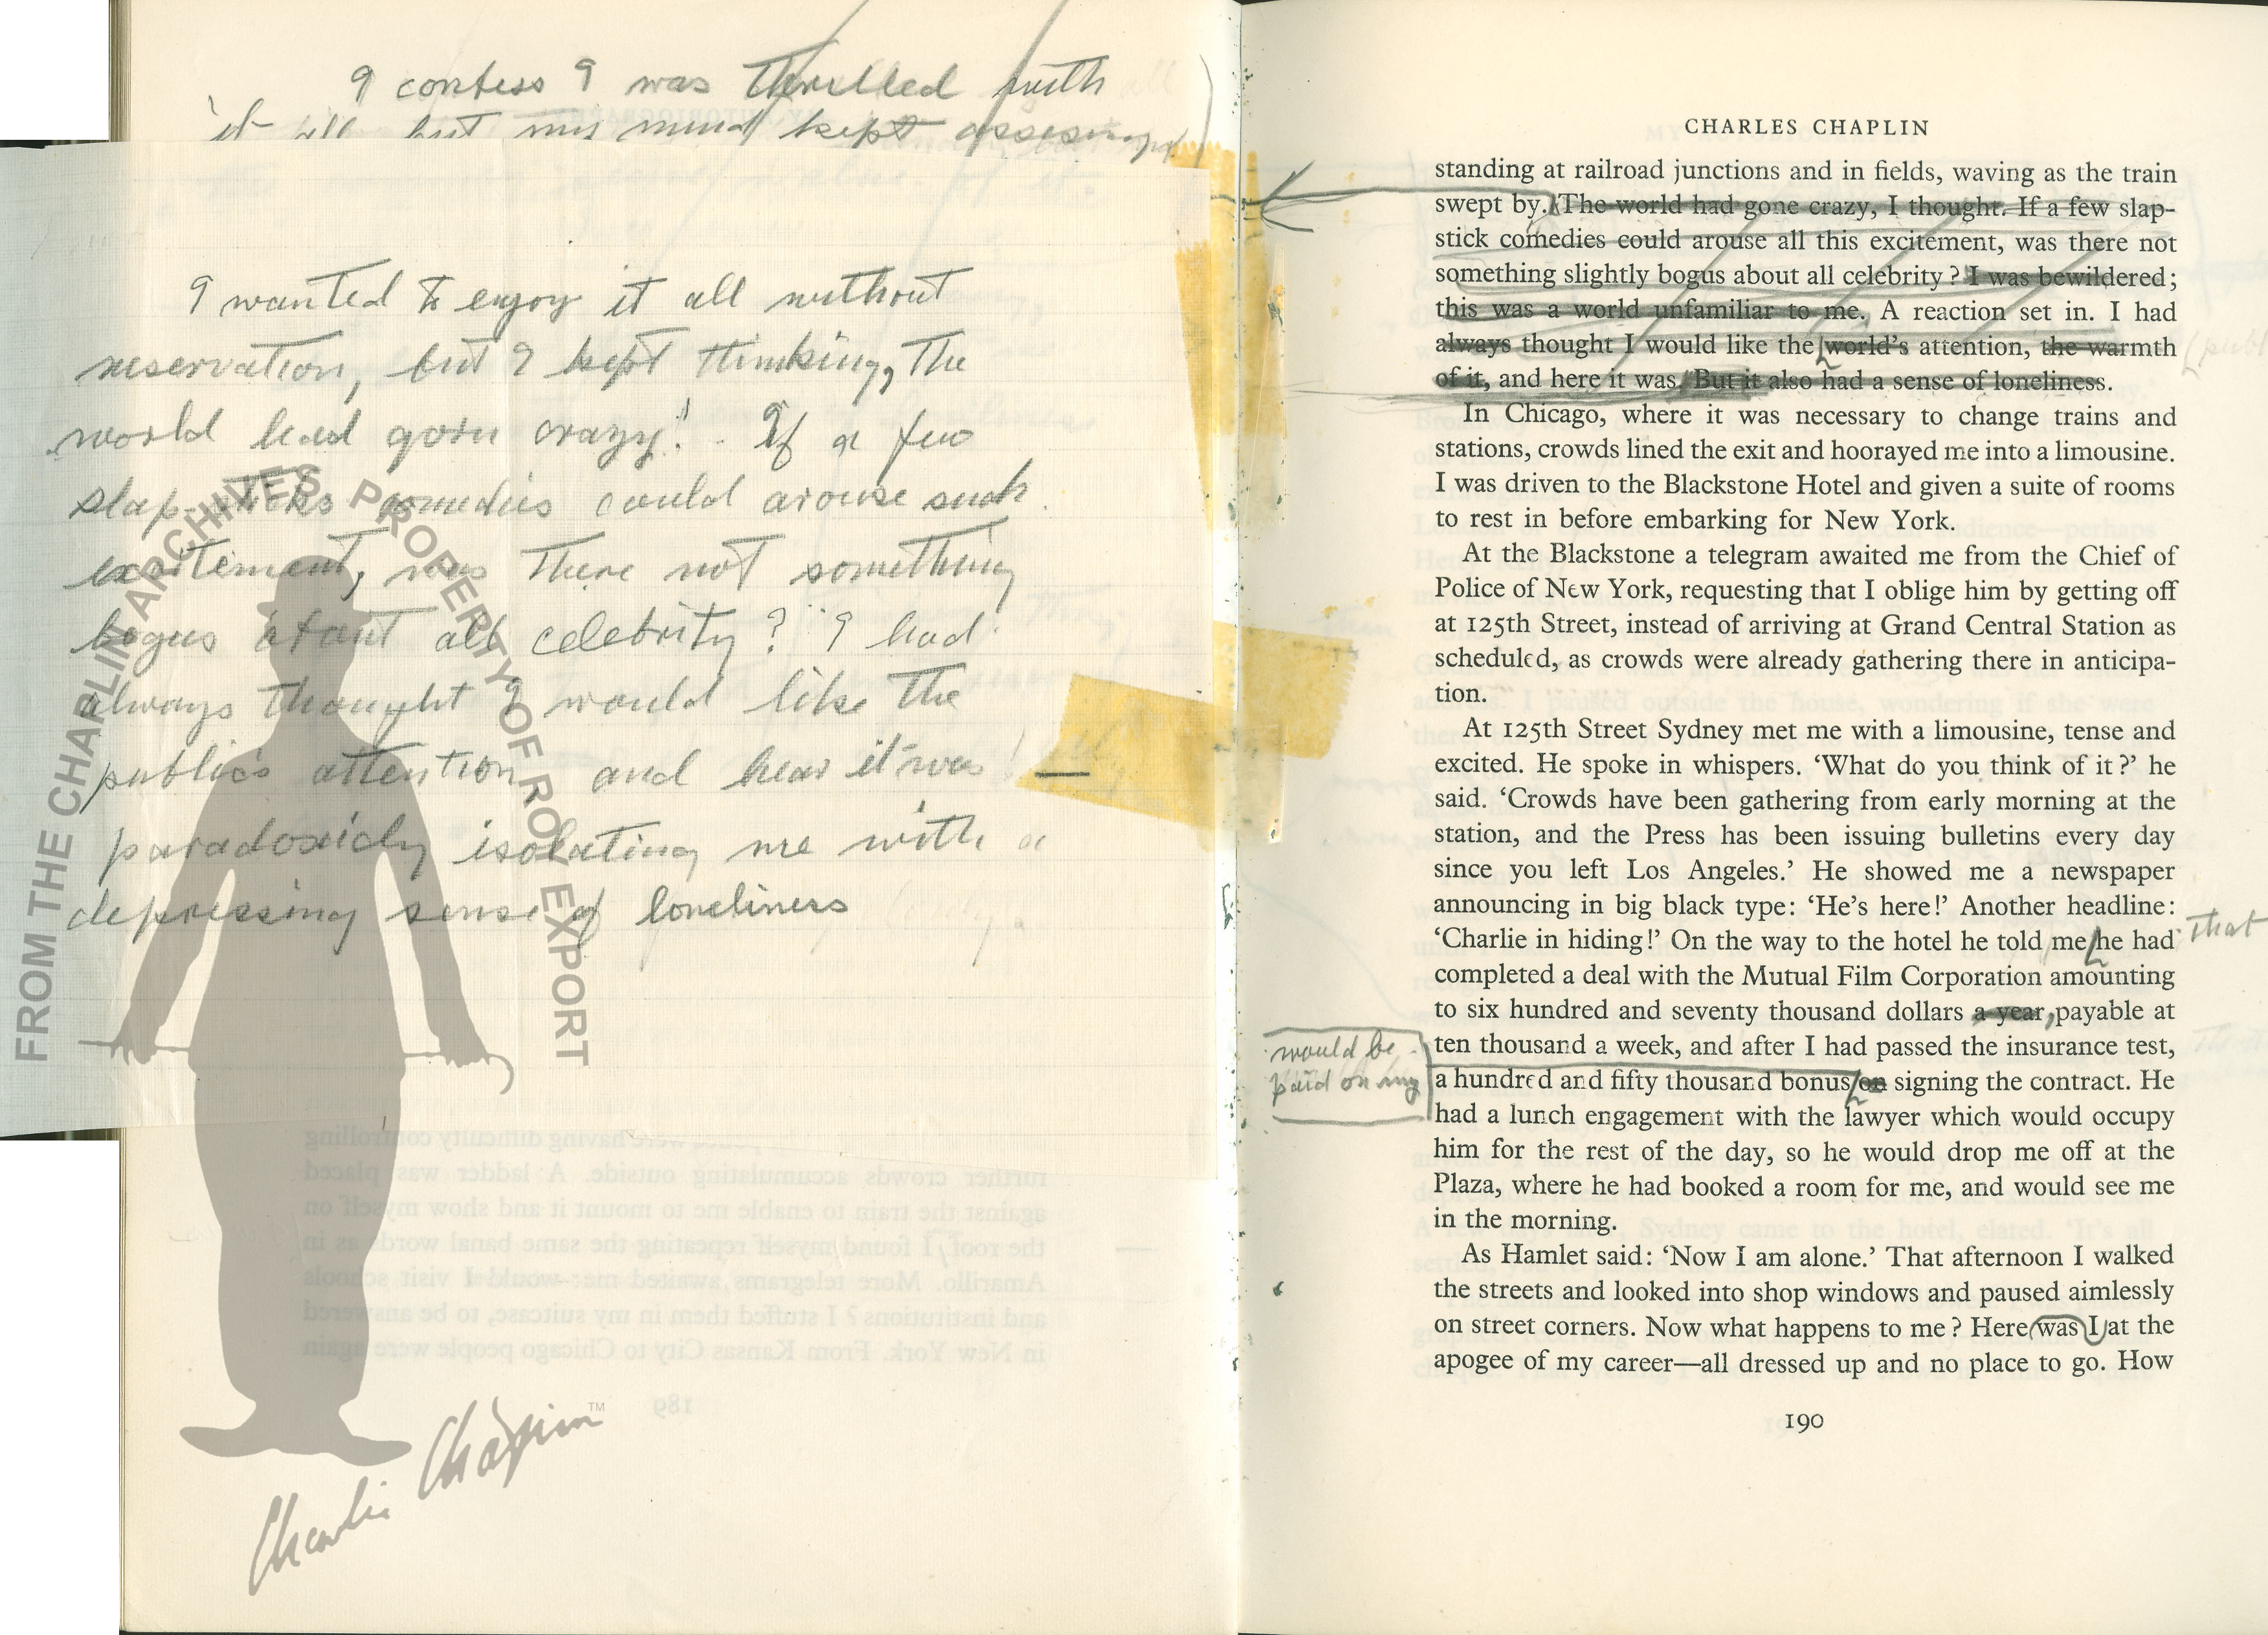 I confess I was thrilled with
it all but my mind kept assesing
I wanted to enjoy it all without
reservation, but I kept thinking, the
world had gorn crazy! If a few
slap-sticks comedies could arouse such
excitement, was there not something
bogus about all celebrity? I had
always thought I would like the
public's attention, and hear it was! —
paradoxicly isolating me with a
depressing sense of loneliness
FROM THE CHAPLIN ARCHIVES PROPERTY OF ROY EXPORT
having difficulty controlling
further crowds accumulating outside. A ladder was placed
against the train to enable me to mount it and show myself on
the roof, I found myself repeating the same banal words as in
Amarillo. More telegrams awaited me: would I visit schools
and institutions? I stuffed them in my suitcase, to be answered
in New York. From Kansas City to Chicago people were again
189
Charlie Chaplin TM
CHARLES CHAPLIN
standing at railroad junctions and in fields, waving as the train
swept by. The world had gone crazy, I thought. If a few slap-
stick comedies could arouse all this excitement, was there not
something slightly bogus about all celebrity? I was bewildered;
this was a world unfamiliar to me. A reaction set in. I had
always thought I would like the world's attention, the warmth
of it, and here it was. But it also had a sense of loneliness.
In Chicago, where it was necessary to change trains and
stations, crowds lined the exit and hoorayed me into a limousine.
I was driven to the Blackstone Hotel and given a suite of rooms
to rest in before embarking for New York.
At the Blackstone a telegram awaited me from the Chief of
Police of New York, requesting that I oblige him by getting off
at 125th Street, instead of arriving at Grand Central Station as
scheduled, as crowds were already gathering there in anticipa-
tion.
At 125th Street Sydney met me with a limousine, tense and
excited. He spoke in whispers. ‘What do you think of it?’ he
said. ‘Crowds have been gathering from early morning at the
station, and the Press has been issuing bulletins every day
since you left Los Angeles.’ He showed me a newspaper
announcing in big black type: ‘He's here!’ Another headline:
‘Charlie in hiding!’ On the way to the hotel he told me he had
that
completed a deal with the Mutual Film Corporation amounting
to six hundred and seventy thousand dollars a year, payable at
ten thousand a week, and after I had passed the insurance test,
would be
paid on my
a hundred and fifty thousand bonus on signing the contract. He
had a lunch engagement with the lawyer which would occupy
him for the rest of the day, so he would drop me off at the
Plaza, where he had booked a room for me, and would see me
in the morning.
As Hamlet said: ‘Now I am alone.’ That afternoon I walked
the streets and looked into shop windows and paused aimlessly
on street corners. Now what happens to me? Here was I at the
apogee of my career—all dressed up and no place to go. How
190